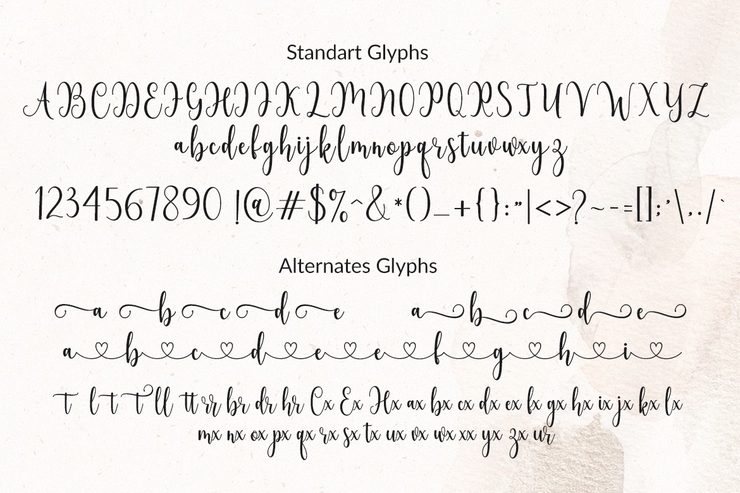 Standart Glyphs
ABCDEFGHIJKLMNOPQRSTUVWXYZ
abcdefghijklmnopqrstuvwxyz
1234567890 !@#$%^&*()_+{}:"|<>?~-=[];'\,./`
Alternates Glyphs
a b c d e a b c d e
a b c d e e f g h i
T l t T ll tt rr br dr hr Cx Ex Hx ax bx cx dx ex fx gx hx ix jx kx lx
mx nx ox px qx rx sx tx ux vx wx xx yx zx ur